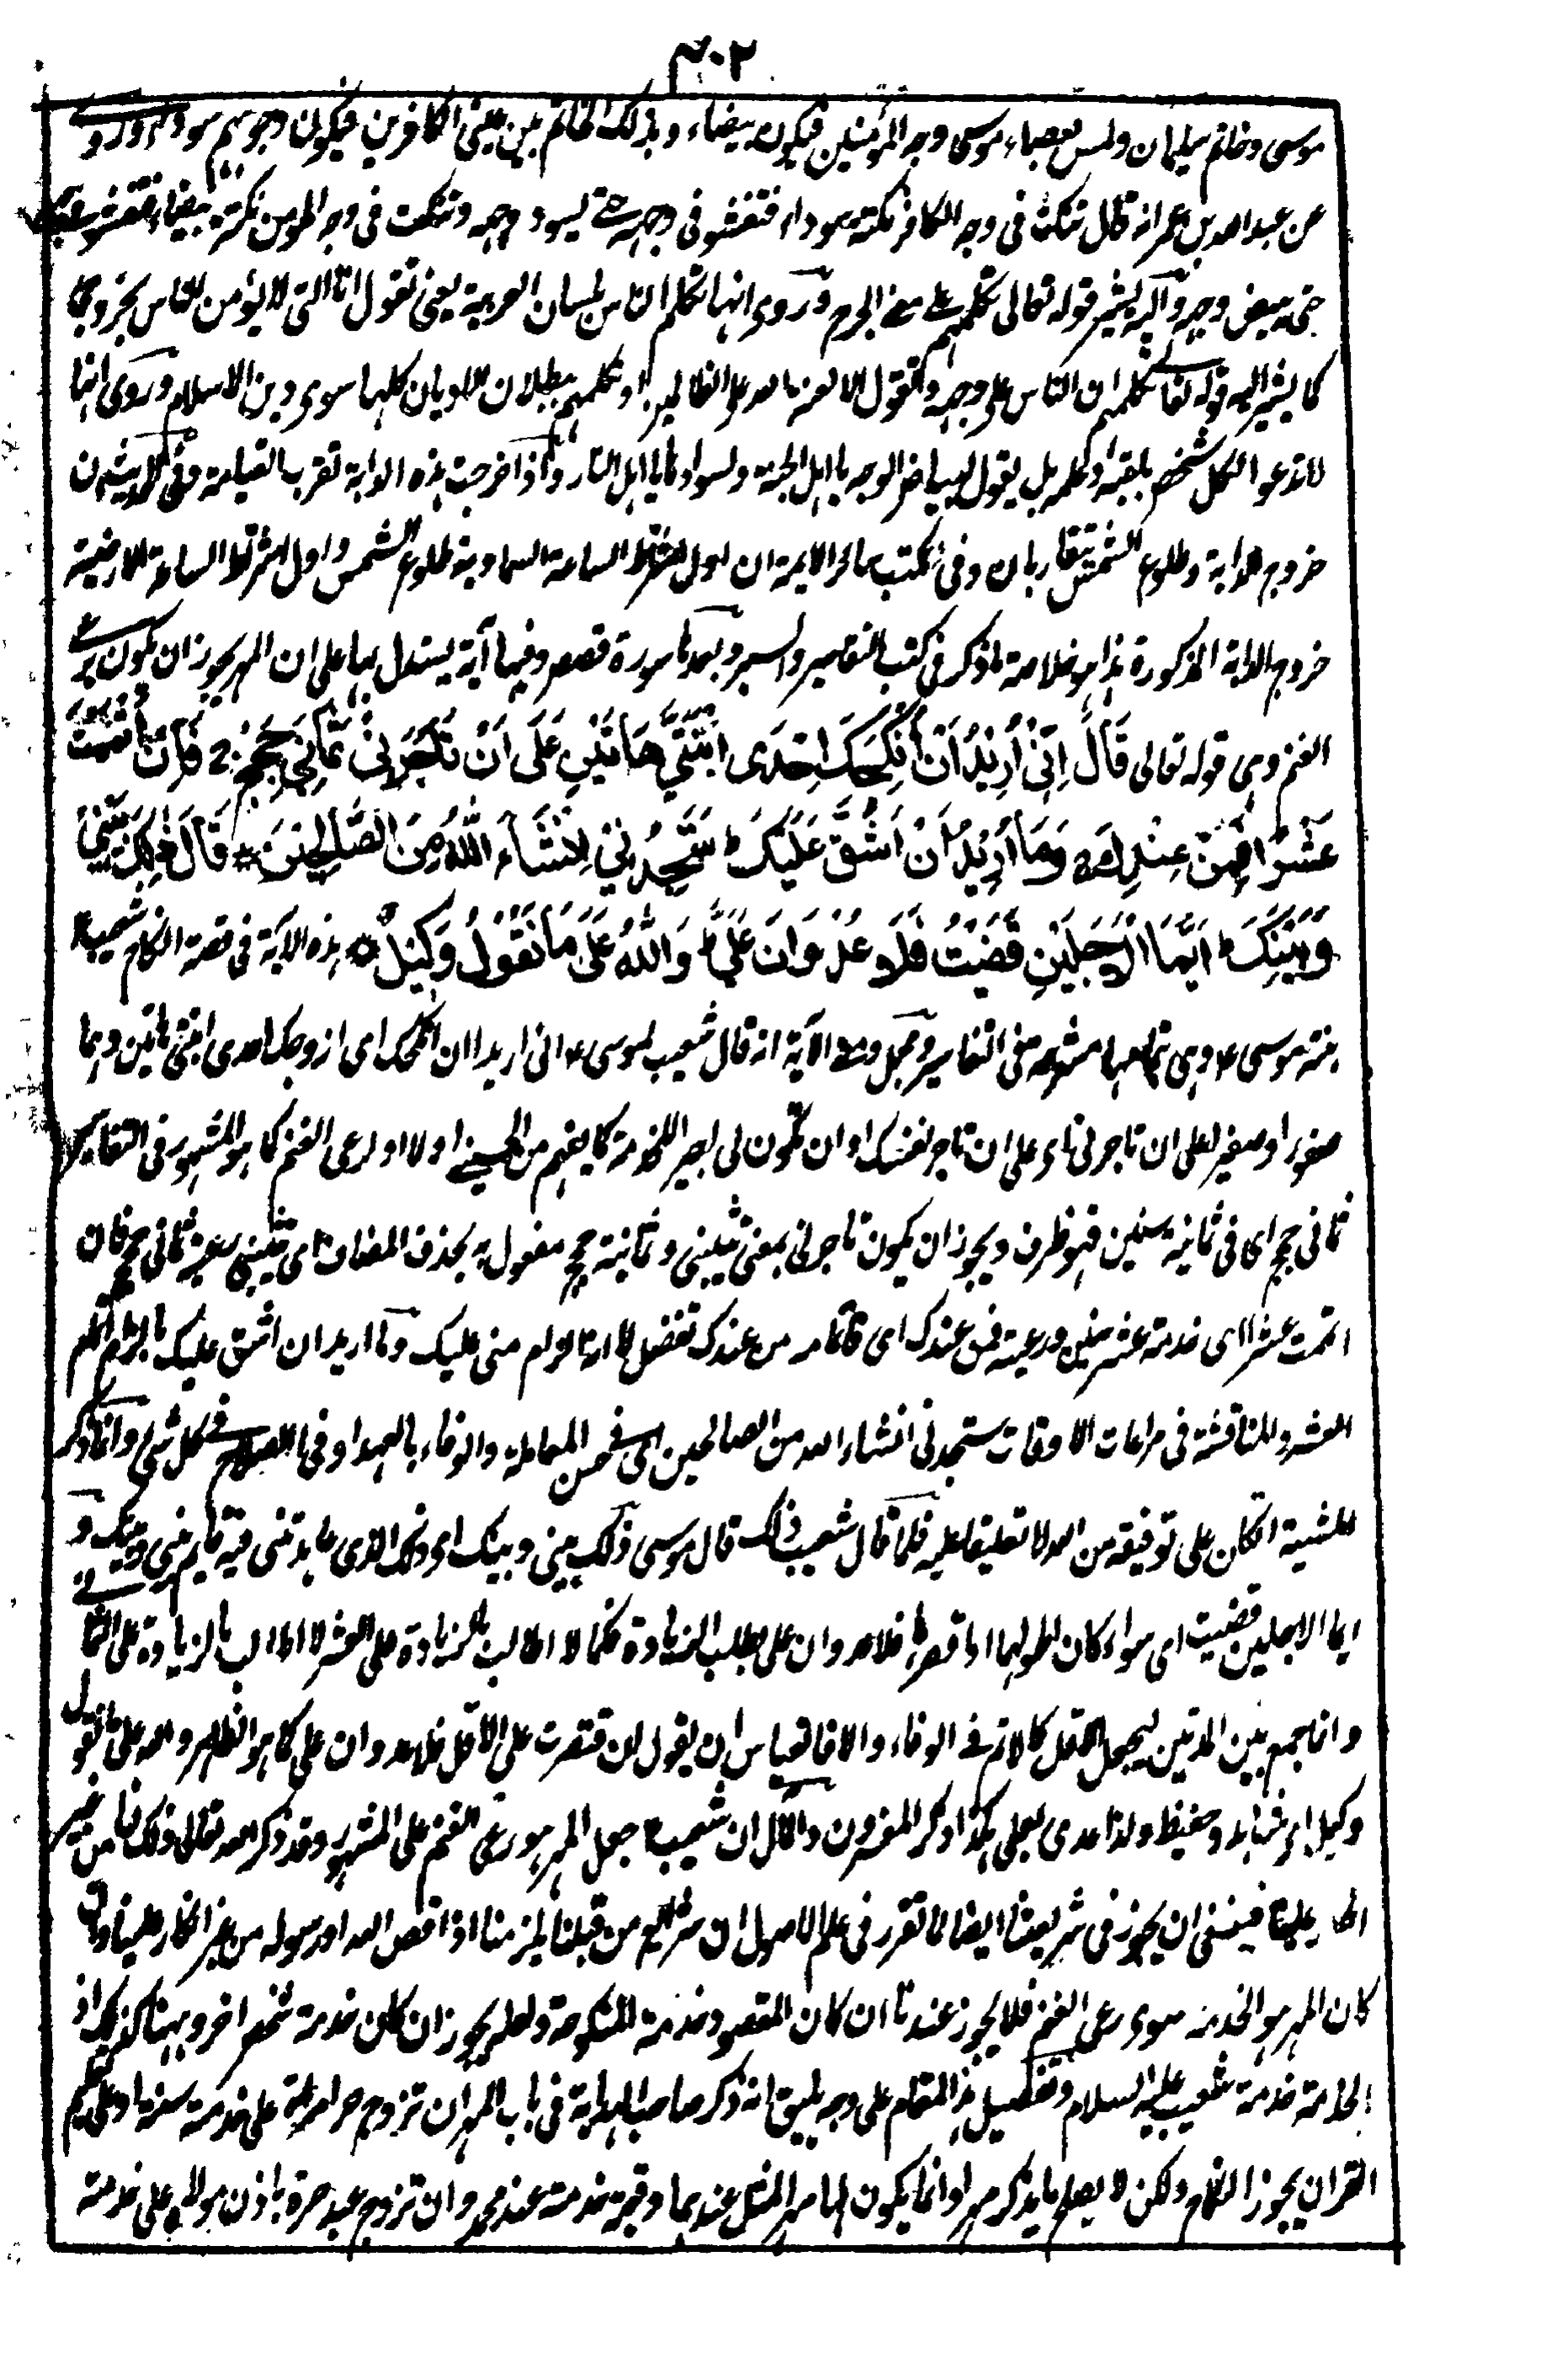 ٤٠٢
موسى وخاتم سليمان ولمس بعصاء موسى وجه المؤمنين فيكون بيضاء وبذلك الخاتم بين عيني الكافرين فيكون وجوههم سوداء وروى
عن عبد الله بن عمر انه قال تنكت فى وجه الكافر نكتة سوداء فتفشو فى وجهه حتى يسود وجهه وتنكت فى وجه المؤمن نكتة بيضاء فتفشو
حتى يبيض وجهه واليه يشير قوله تعالى تكلمهم على معنى الجرح وروى انها تكلم الناس بلسان العربية يعنى تقول انا التى لا يؤمن الناس بخروجها
كما يشير اليه قوله تعالى تكلمهم ان الناس على وجه وتقول الا لعنة الله على الظالمين او تكلمهم ببطلان الاديان كلها سوى دين الاسلام وروى انها
لا تدعو الكل شخص بلقبه او علمه بل يقول لبياض الوجه يا اهل الجنة ولسوادها يا اهل النار واذا خرجت هذه الدابة تقرب القيامة وفى الحديث ان
خروج الدابة وطلوع الشمس متقاربان وفى كتب سائر الايمة ان اول اشراط الساعة السماوية طلوع الشمس واول اشراط الساعة الارضية
خروج الدابة المذكورة هذا هو خلاصة ما ذكر فى كتب التفاسير والسير وبعدها سورة قصص وفيها آية يستدل بها على ان المهر يجوز ان يكون رعى
الغنم وهى قوله تعالى قَالَ اِنِّىْ اُرِيْدُ اَنْ اُنْكِحَكَ اِحْدَى ابْنَتَىَّ هَاتَيْنِ عَلٰٓى اَنْ تَاْجُرَنِىْ ثَمَانِىَ حِجَجٍ ۚ فَاِنْ اَتْمَمْتَ
عَشْرًا فَمِنْ عِنْدِكَ ۚ وَمَا اُرِيْدُ اَنْ اَشُقَّ عَلَيْكَ ط سَتَجِدُنِىْ اِنْشَآءَ اللّٰهُ مِنَ الصّٰلِحِيْنَ ۞ قَالَ ذٰلِكَ بَيْنِىْ
وَبَيْنَكَ ط اَيَّمَا الْاَجَلَيْنِ قَضَيْتُ فَلَا عُدْوَانَ عَلَىَّ ط وَاللّٰهُ عَلٰى مَا نَقُوْلُ وَكِيْلٌ ۞ هذه الآية فى قصة انكاح شعيب ع
بنته موسى ع وهى بتمامها مشروحة فى التفاسير ومجمل معنى الآية انه قال شعيب لموسى ع انى اريد ان انكحك اى ازوجك احدى ابنتى هاتين وهما
صفورا وصفيرا على ان تاجرنى اى على ان تاجر نفسك او ان تكون لى اجير اللخدمة كما يفهم من الحسينى اولا او لرعى الغنم كما هو المشهور فى التفاسير
ثمانى حجج اى فى ثمانية سنين فهو ظرف ويجوز ان يكون تاجرنى بمعنى تثيبنى وثمانية حجج مفعول به بحذف المضاف اى تثيبنى رعية ثمانى حجج فان
اتممت عشرا اى خدمة عشر سنين ورعيته فمن عندك اى فاتمامه من عندك تفضل لا الزام منى عليك وما اريد ان اشق عليك بالزام اتمام
العشر والمناقشة فى مراعات الاوقات ستجدنى انشاء الله من الصالحين اى فى حسن المعاملة والوفاء بالعهد او فى الصلاح فى كل شئ وانما ذكر
المشية اتكان على توفيقه من الله لا تعليقا عليه فلما قال شعيب ذلك قال موسى ذلك بينى وبينك اى ذلك الذى عاهدتنى فيه قايم بينى وبينك و
ايما الاجلين قضيت اى سواء كان اطولهما او اقصرهما فلا عدوان على بطلب الزيادة فكما لا اطالب بالزيادة على العشر لا اطالب بالزيادة على الثمانى
وانما جمع بين المدتين ليجعل الاقل كالاتم فى الوفاء والا فالقياس ان يقول ان قضيت على الاقل فلا عدوان على كما هو الظاهر والله على ما نقول
وكيل اى شاهد وحفيظ هكذا ذكر المفسرون والآن ان شعيب ع جعل المهر هو رعى الغنم على المشهور وقد ذكر الله تعالى ذلك لنا من غير
انكار علينا فينبغى ان يجوز فى شريعتنا ايضا لما تقرر فى علم الاصول ان شرايع من قبلنا يلزمنا اذا قص الله او رسوله من غير انكار علينا وان
كان المهر هو الخدمة سوى رعى الغنم فلا يجوز عندنا ان كان المقصود خدمة المنكوحة ولعله يجوز ان كان خدمة شخص آخر وههنا كذلك اذ
الخدمة خدمة شعيب عليه السلام وتفصيل هذا المقام على وجه يليق انه ذكر صاحب الهداية فى باب المهر ان تزوج حر امراة على خدمة سنة او على تعليم
القران يجوز النكاح ولكن لا يصلح ما ذكر مهرا وانما يكون لها مهر المثل عندهما وقيمة خدمة عند محمد وان تزوج عبد حرة باذن مولاه على خدمته